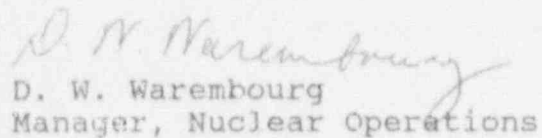 D. W. Warembourg
D. W. Warembourg
Manager, Nuclear Operations